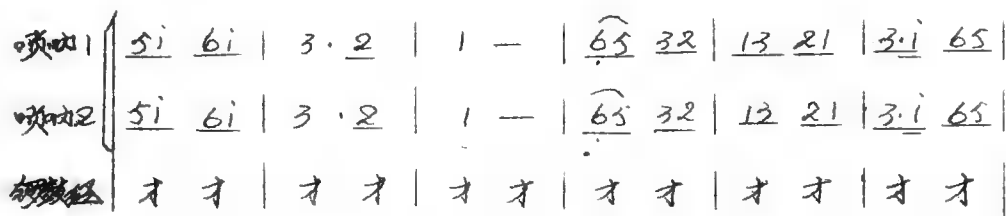 唢呐1 5i 6i | 3·2 | 1 — | 65 32 | 13 21 | 3·i 65 |
唢呐2 5i 6i | 3·2 | 1 — | 65 32 | 13 21 | 3·i 65 |
锣鼓经 | 才 才 | 才 才 | 才 才 | 才 才 | 才 才 | 才 才 |